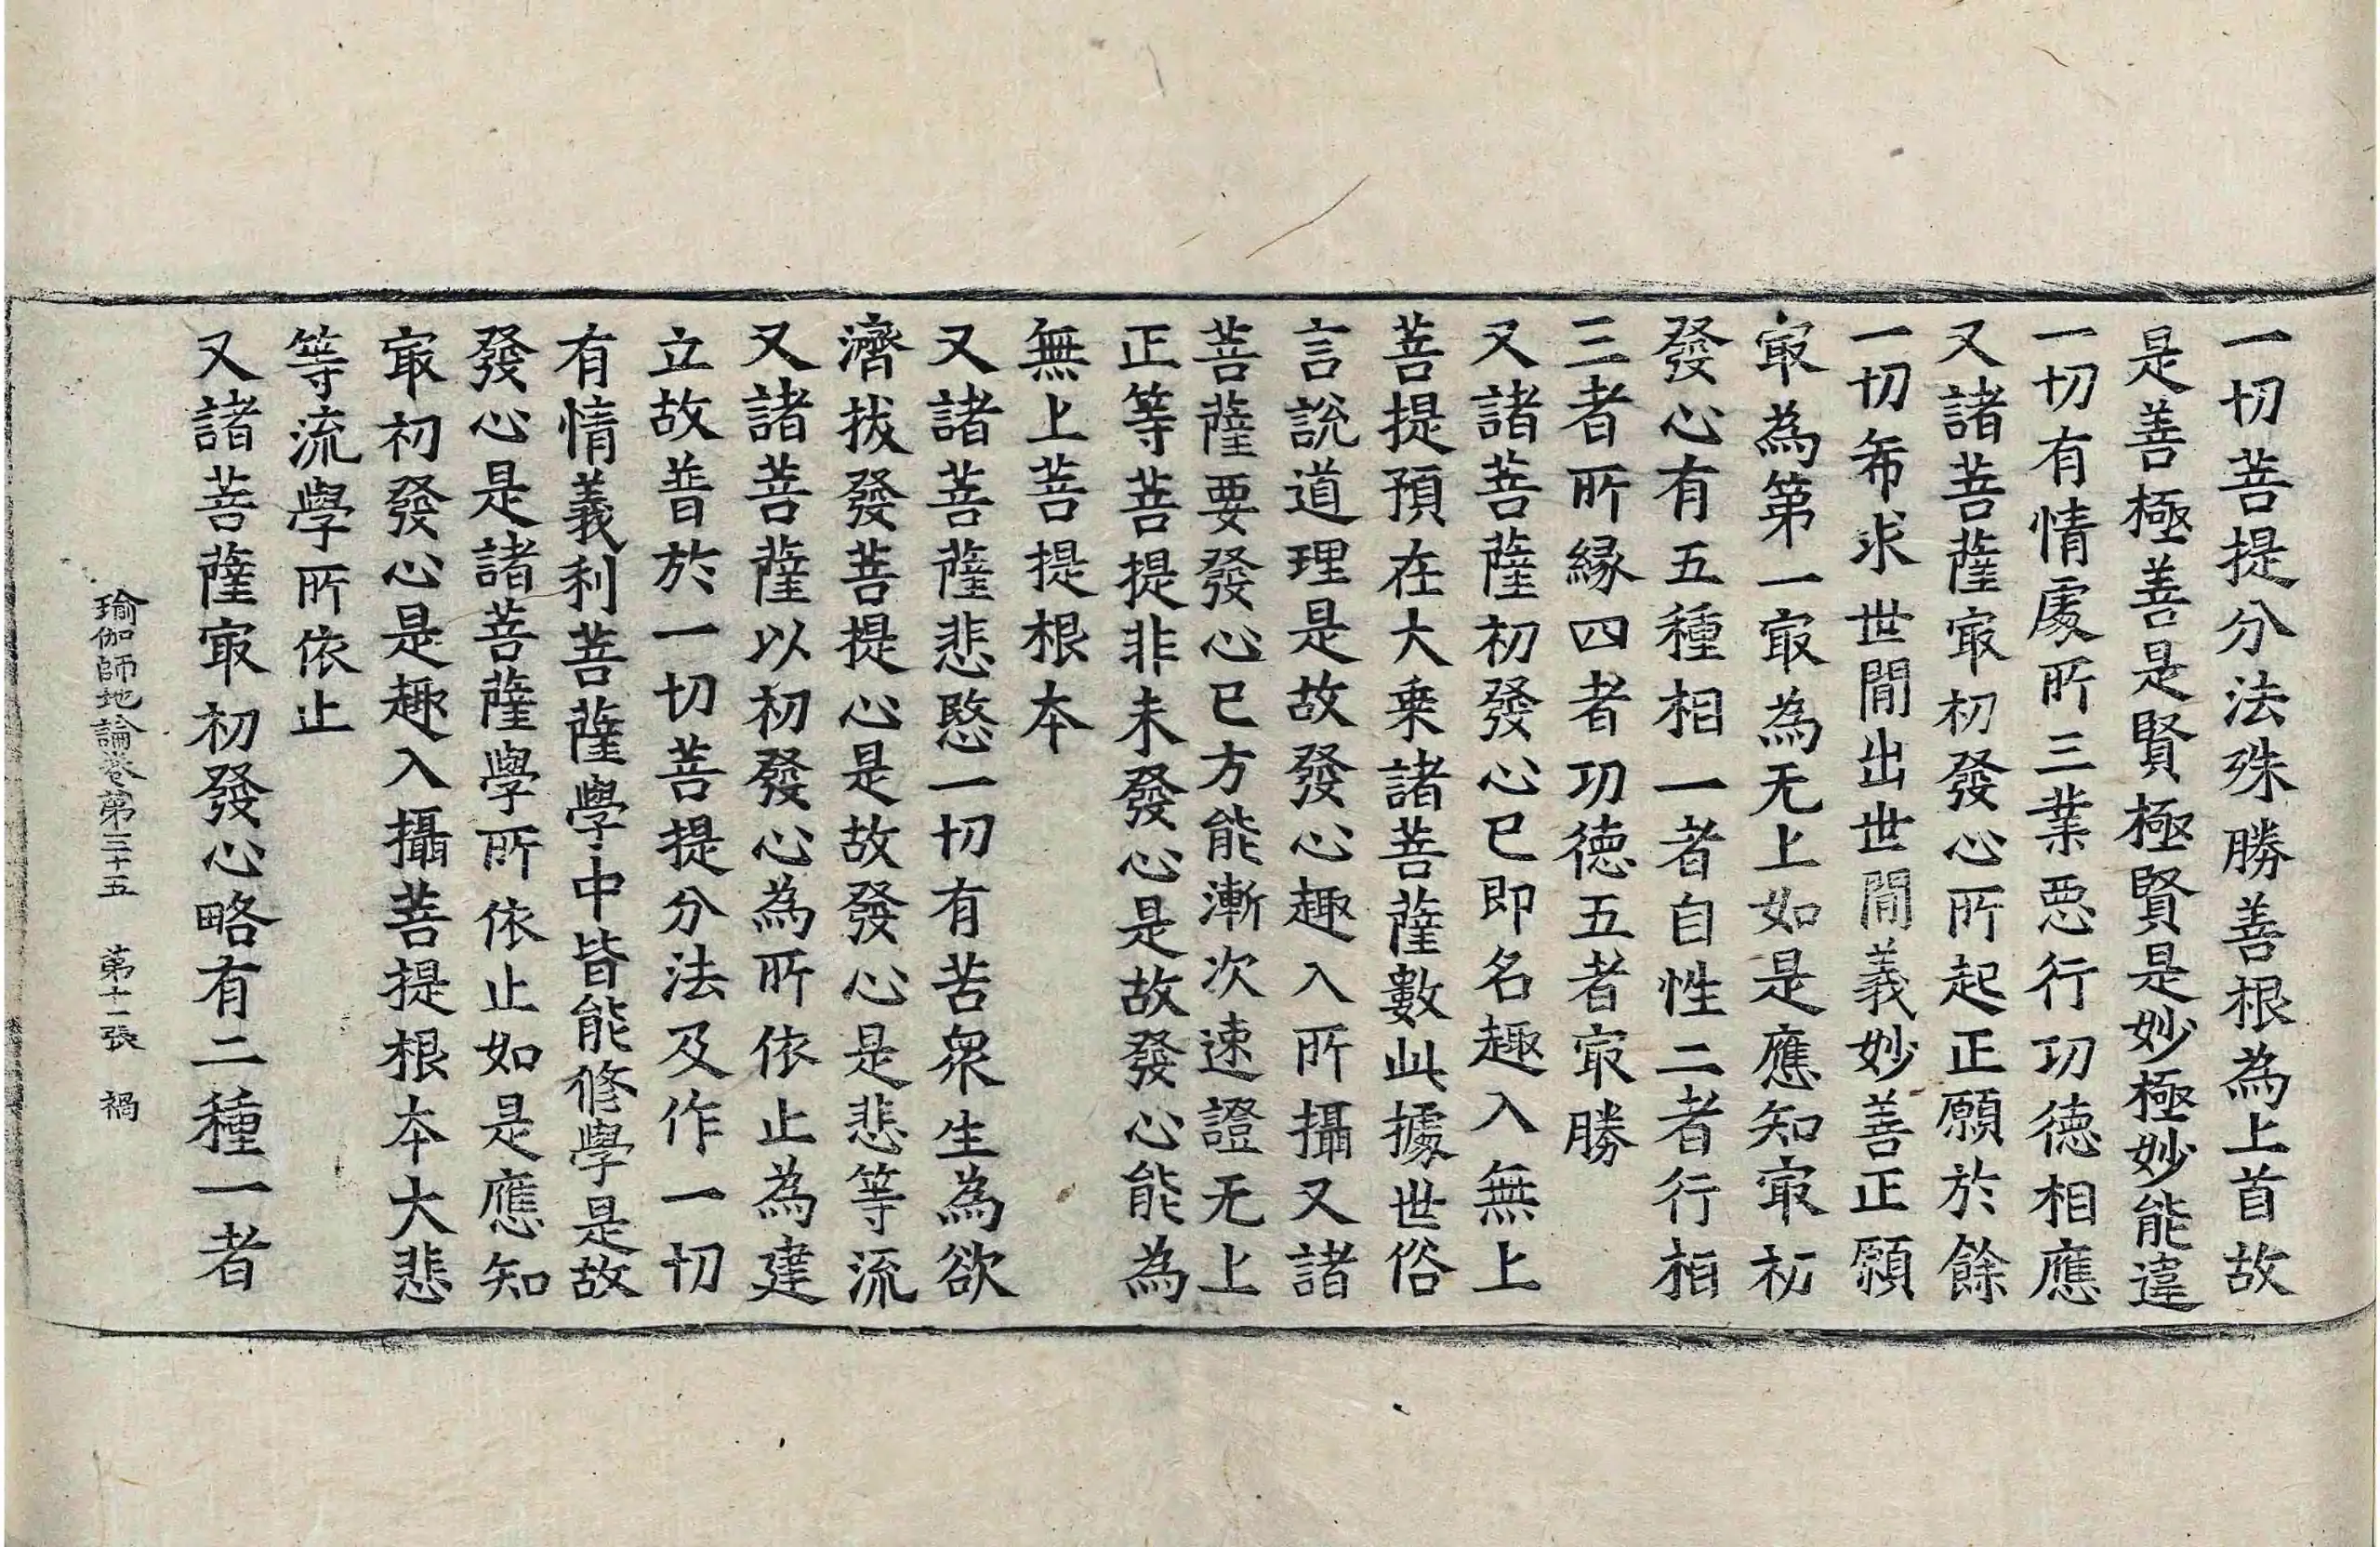 一切菩提分法殊勝善根為上首故
是善極善是賢極賢是妙極妙能違
一切有情處所三業惡行功德相應
又諸菩薩冣初發心所起正願於餘
一切希求世間出世間義妙善正願
冣為第一冣為无上如是應知冣初
發心有五種相一者自性二者行相
三者所緣四者功德五者冣勝
又諸菩薩初發心已即名趣入無上
菩提預在大乗諸菩薩數此據世俗
言說道理是故發心趣入所攝又諸
菩薩要發心已方能漸次速證无上
正等菩提非未發心是故發心能為
無上菩提根本
又諸菩薩悲愍一切有苦衆生為欲
濟拔發菩提心是故發心是悲等流
又諸菩薩以初發心為所依止為建
立故普於一切菩提分法及作一切
有情義利菩薩學中皆能修學是故
發心是諸菩薩學所依止如是應知
冣初發心是趣入攝菩提根本大悲
等流學所依止
又諸菩薩冣初發心略有二種一者
瑜伽師地論卷第三十五 第十一張 禍